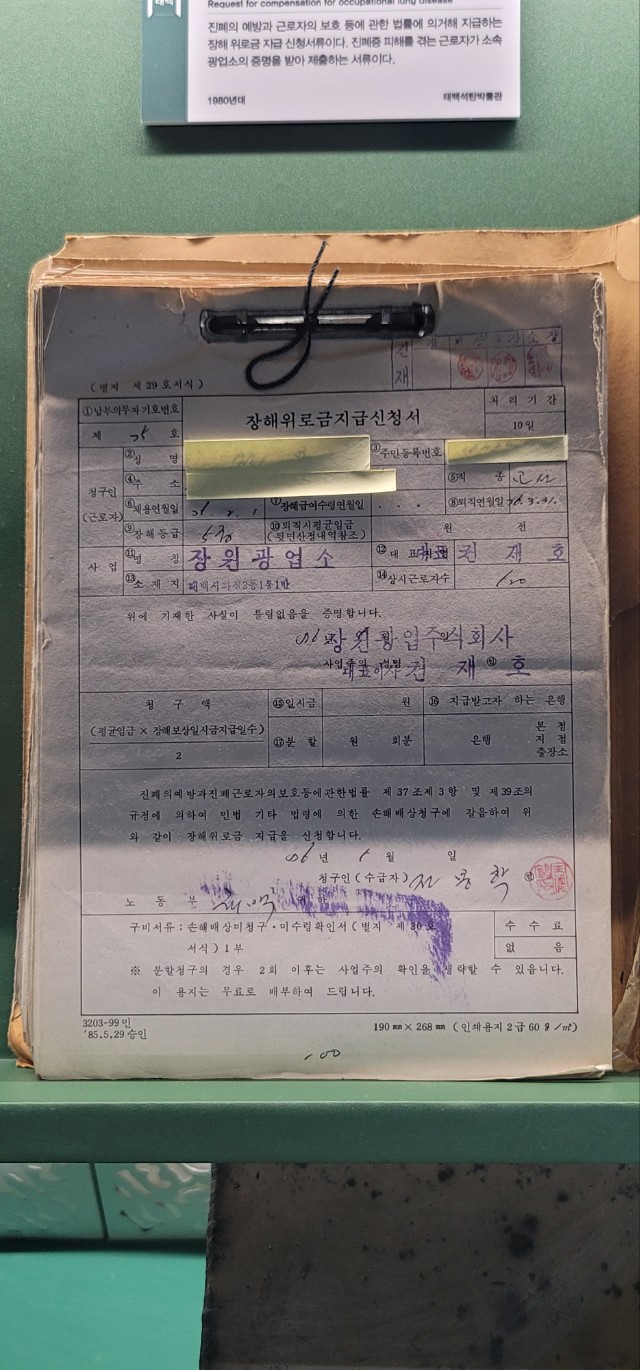 태백
Request for compensation for occupational lung disease
진폐의 예방과 근로자의 보호 등에 관한 법률에 의거해 지급하는
장해 위로금 지급 신청서류이다. 진폐증 피해를 겪는 근로자가 소속
광업소의 증명을 받아 제출하는 서류이다.
1980년대 태백석탄박물관
(별지 제29호서식)
결재 계 소장
①납부의무자기호번호 장해위로금지급신청서 처리기간
제 호 10일
청구인 (근로자) ②성명 ③주민등록번호
④주소 ⑤직종
⑥채용연월일 ⑦장해급여수령연월일 . . . ⑧퇴직연월일
⑨장해등급 ⑩퇴직시평균임금 (뒷면산정내역참조) 원 전
사업 ⑪명칭 장원광업소 ⑫대표자 권재호
⑬소재지 ⑭상시근로자수
위에 기재한 사실이 틀림없음을 증명합니다.
86 년 월 일
장원광업주식회사
사업주의 성명 대표이사 권재호 ㊞
청구액 ⑮일시금 원 ⑯지급받고자 하는 은행
(평균임금 × 장해보상일시금지급일수) / 2 ⑰분할 원 회분 은행 본점 지점 출장소
진폐의예방과진폐근로자의보호등에관한법률 제37조제3항 및 제39조의
규정에 의하여 민법 기타 법령에 의한 손해배상청구에 갈음하여 위
와 같이 장해위로금 지급을 신청합니다.
86 년 월 일
청구인(수급자) ㊞
노동부
구비서류 : 손해배상미청구·미수령확인서(별지 제30호 수수료
서식) 1부 없음
※ 분할청구의 경우 2회 이후는 사업주의 확인을 생략할 수 있읍니다.
이 용지는 무료로 배부하여 드립니다.
3203-99 민
'85.5.29 승인 190㎜×268㎜ (인쇄용지 2급 60g/㎡)